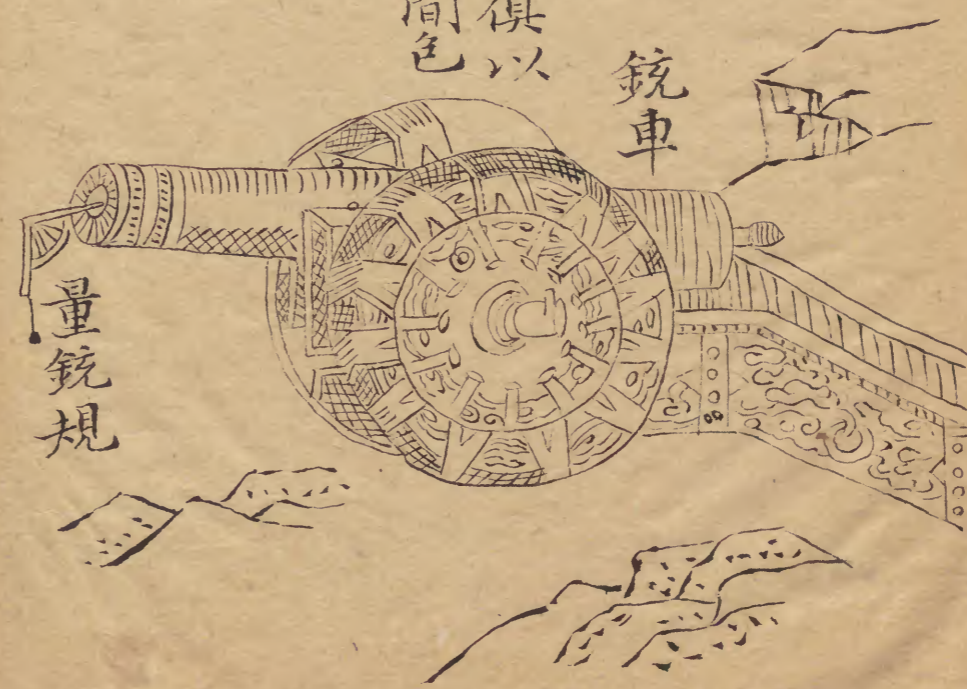 銃車
俱以
間色
量銃規